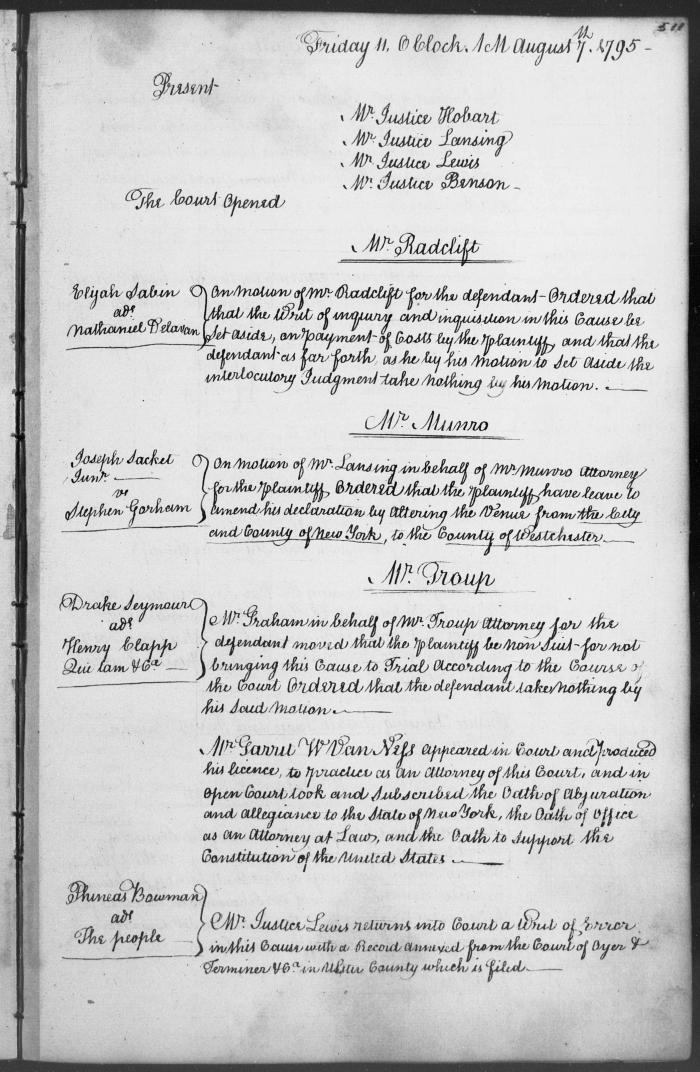 511
Friday 11. OClock. AM August 7th. 1795 -
Present
Mr. Justice Hobart
Mr. Justice Lansing
Mr. Justice Lewis
Mr. Justice Benson -
The Court Opened
Mr. Radclift
Elijah Sabin
ads
Nathaniel Delavan
On motion of Mr. Radclift for the defendant - Ordered that
that the Writ of inquiry and inquisition in this Cause be
Set Aside, on Payment of Costs by the Plaintiff, and that the
defendant as far forth as he by his motion to Set Aside the
interlocutory Judgment take nothing by his motion. -
Mr. Munro
Joseph Sacket
Junr. -
vs
Stephen Gorham
On motion of Mr. Lansing in behalf of Mr. Munro Attorney
for the Plaintiff Ordered that the Plaintiff have leave to
amend his declaration by Altering the Venue from the City
and County of New York, to the County of Westchester. -
Mr. Troup
Drake Seymour
ads
Henry Clapp
Qui tam &Ca -
Mr. Graham in behalf of Mr. Troup Attorney for the
defendant moved that the Plaintiff be Non Suit for not
bringing this Cause to Trial According to the Course of
the Court Ordered that the defendant take nothing by
his said motion -
Mr. Garrit W Van Ness appeared in Court and Produced
his licence, to Practice as an Attorney of this Court, and in
Open Court took and Subscribed the Oath of Abjuration
and allegiance to the State of New York, the Oath of Office
as an Attorney at Law, and the Oath to Support the
Constitution of the United States -
Phineas Bowman
ads
The people
Mr. Justice Lewis returns into Court a Writ of Error
in this Cause with a Record annexed from the Court of Oyer &
Terminer &Ca in Ulster County which is filed -